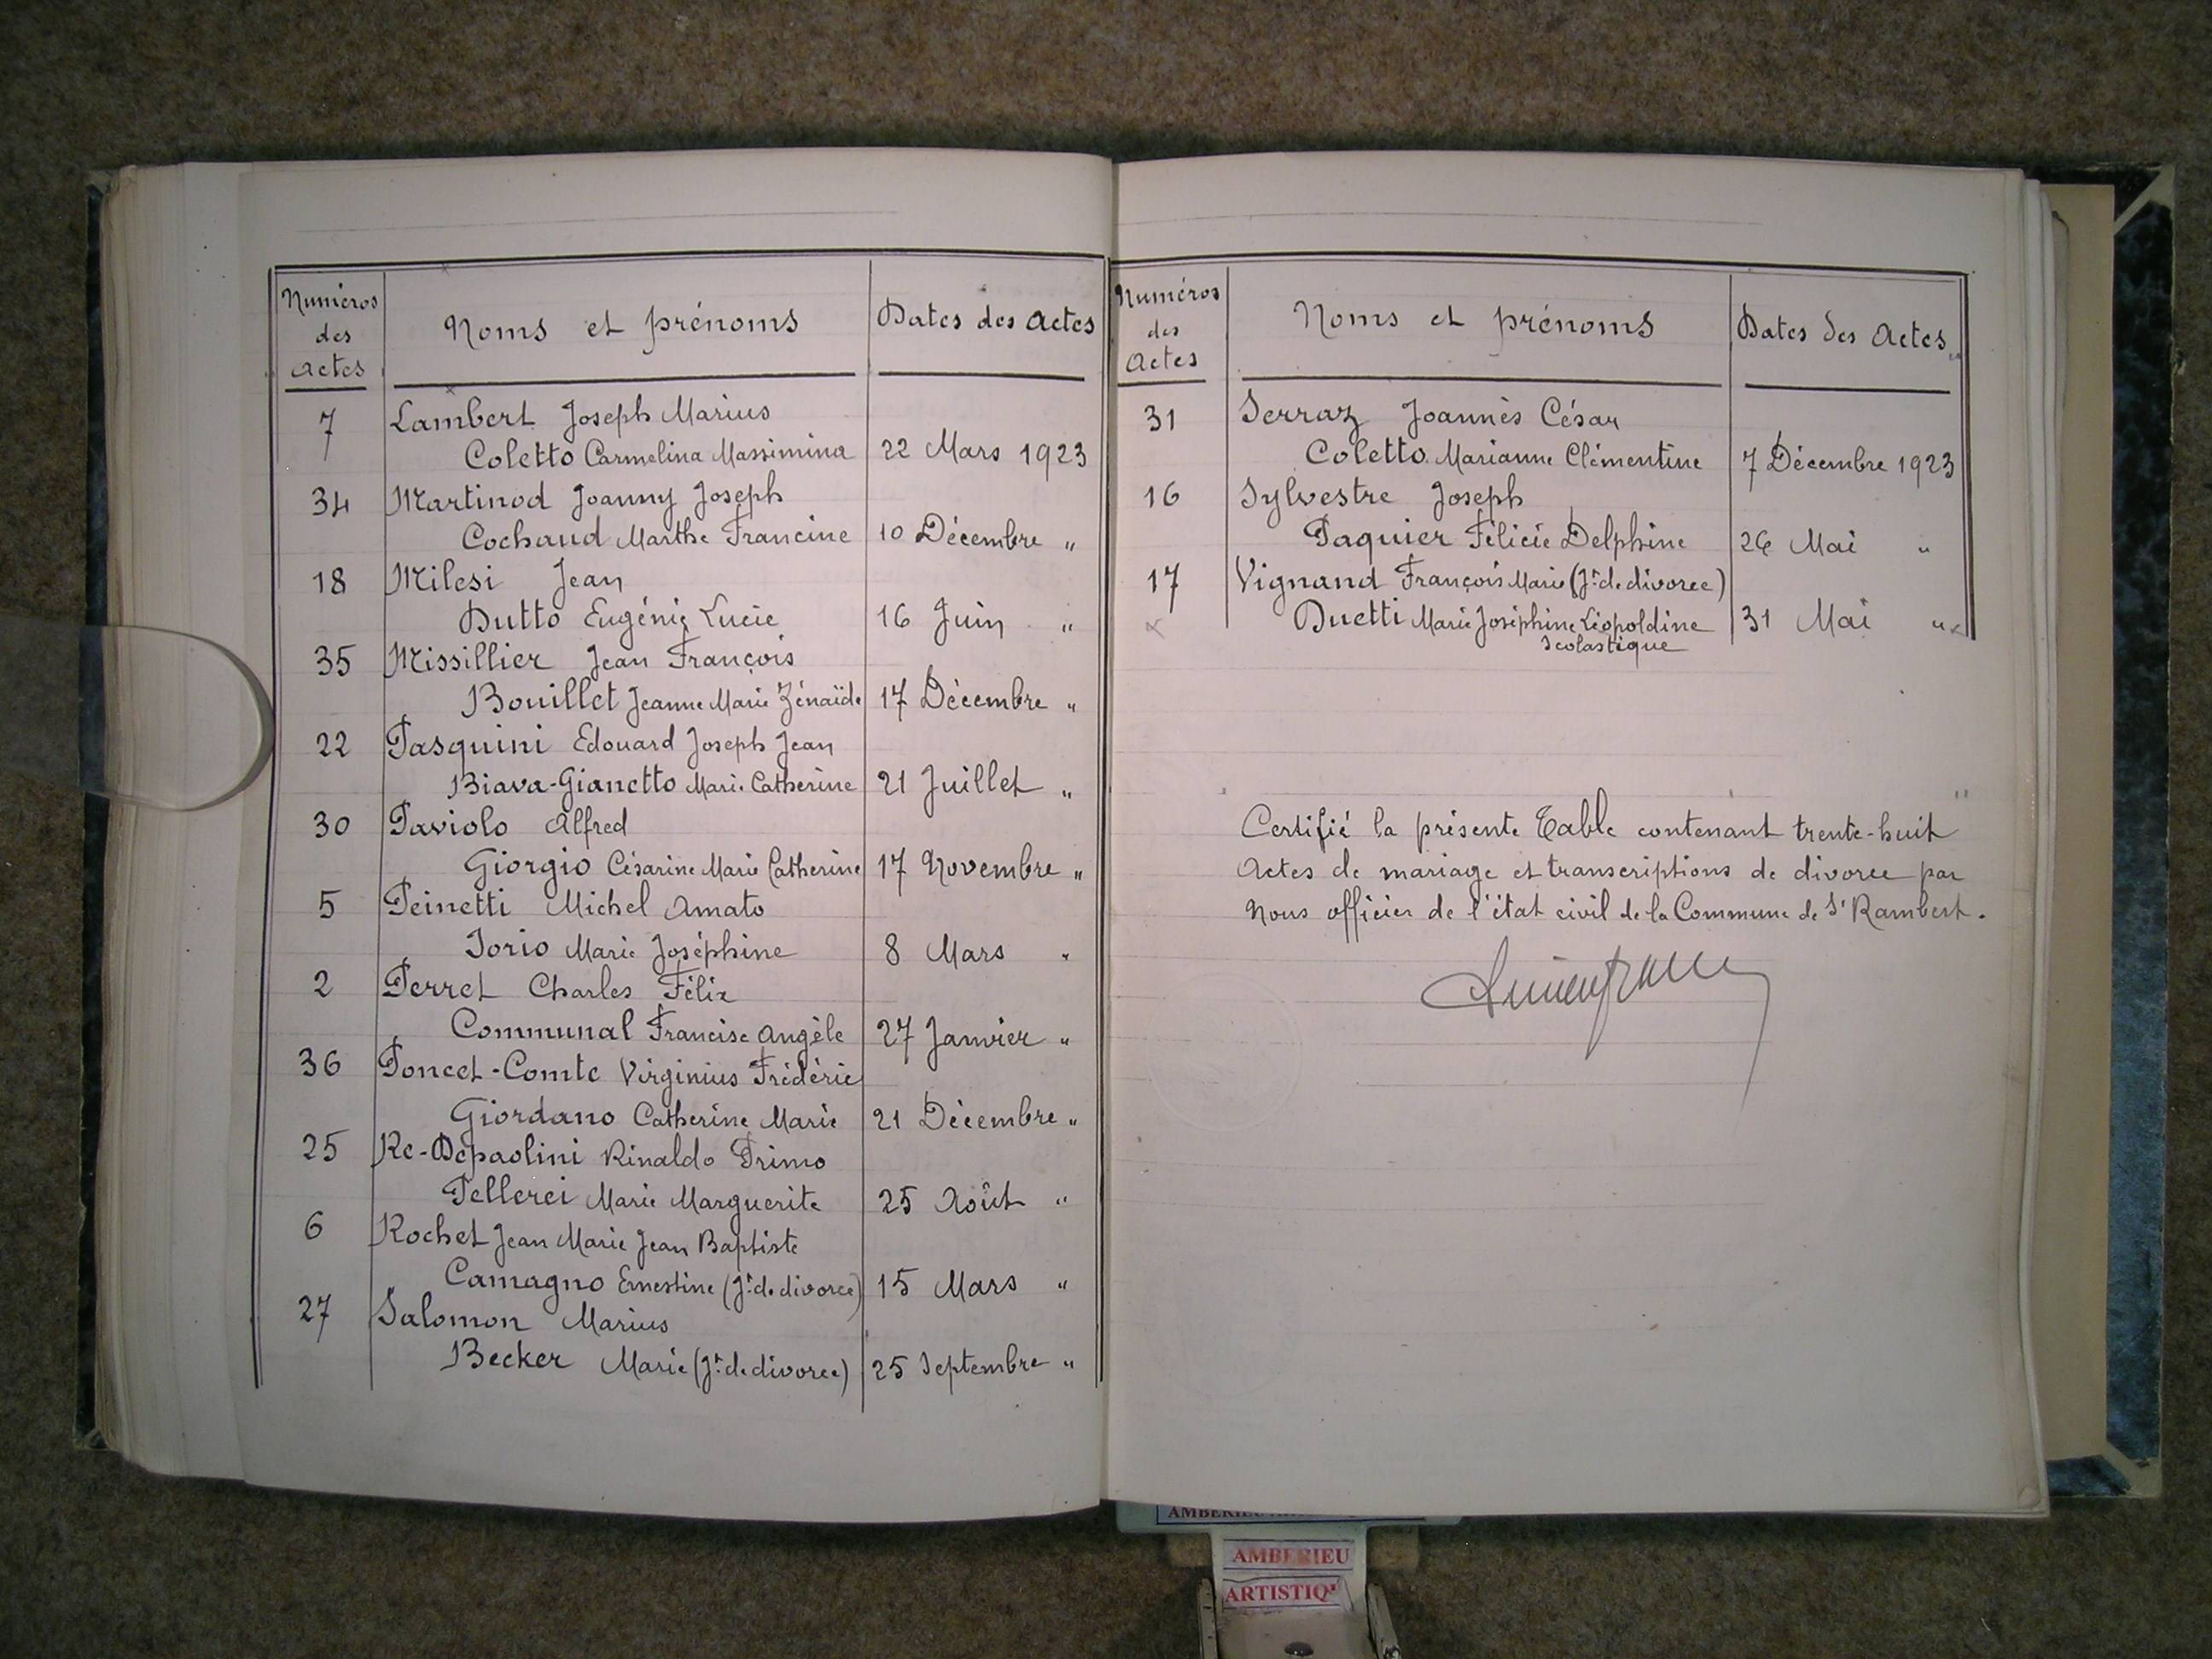 Numéros des Actes | Noms et prénoms | Dates des Actes
7 Lambert Joseph Marius
Coletto Carmelina Massimina 22 Mars 1923
34 Martinod Joanny Joseph
Cochaud Marthe Francine 10 Décembre "
18 Milesi Jean
Dutto Eugénie Lucie 16 Juin "
35 Missillier Jean François
Bouillet Jeanne Marie Zénaïde 17 Décembre "
22 Pasquini Edouard Joseph Jean
Biava-Gianetto Marie Catherine 21 Juillet "
30 Paviolo Alfred
Giorgio Césarine Marie Catherine 17 Novembre "
5 Peinetti Michel Amato
Iorio Marie Joséphine 8 Mars "
2 Perret Charles Félix
Communal Francise Angèle 27 Janvier "
36 Poncet-Comte Virginius Frédéric
Giordano Catherine Marie 21 Décembre "
25 Re-Depaolini Rinaldo Primo
Pellerei Marie Marguerite 25 Août "
6 Rochet Jean Marie Jean Baptiste
Camagno Ernestine (Jt de divorce) 15 Mars "
27 Salomon Marius
Becker Marie (Jt de divorce) 25 Septembre "
Numéros des Actes | Noms et prénoms | Dates des Actes
31 Serraz Joannès César
Coletto Marianne Clémentine 7 Décembre 1923
16 Sylvestre Joseph
Paquier Félicie Delphine 26 Mai "
17 Vignand François Marie (Jt de divorce)
Duetti Marie Joséphine Léopoldine 31 Mai "
Scolastique
Certifié la présente Table contenant trente-huit
Actes de mariage et transcriptions de divorce par
Nous officier de l'état civil de la Commune de St Rambert.
AMBERIEU
ARTISTIQ